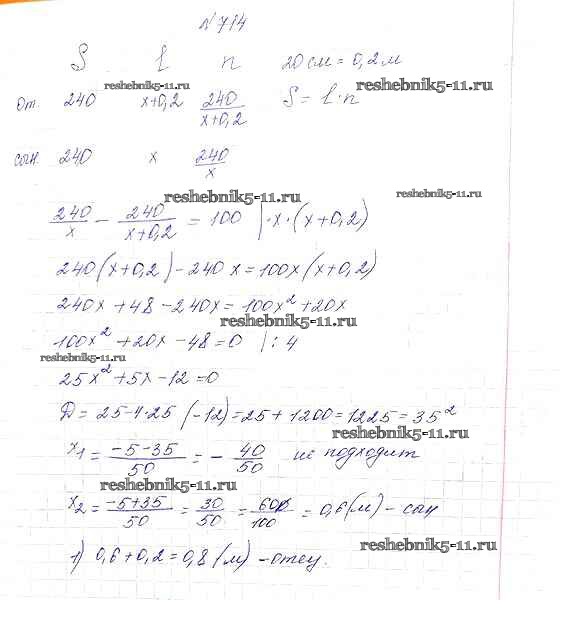 №714
S l n 20 см = 0,2 м
reshebnik5-11.ru reshebnik5-11.ru
от. 240 x+0,2 240/(x+0,2) S = l·n
сын. 240 x 240/x
reshebnik5-11.ru reshebnik5-11.ru
240/x − 240/(x+0,2) = 100 |·x·(x+0,2)
240(x+0,2) − 240x = 100x(x+0,2)
240x + 48 − 240x = 100x² + 20x
reshebnik5-11.ru
100x² + 20x − 48 = 0 |:4
reshebnik5-11.ru
25x² + 5x − 12 = 0
D = 25 − 4·25(−12) = 25 + 1200 = 1225 = 35²
reshebnik5-11.ru
x₁ = (−5−35)/50 = −40/50 не подходит
reshebnik5-11.ru
x₂ = (−5+35)/50 = 30/50 = 60/100 = 0,6(м) − сын
1) 0,6 + 0,2 = 0,8(м) − отец.
reshebnik5-11.ru